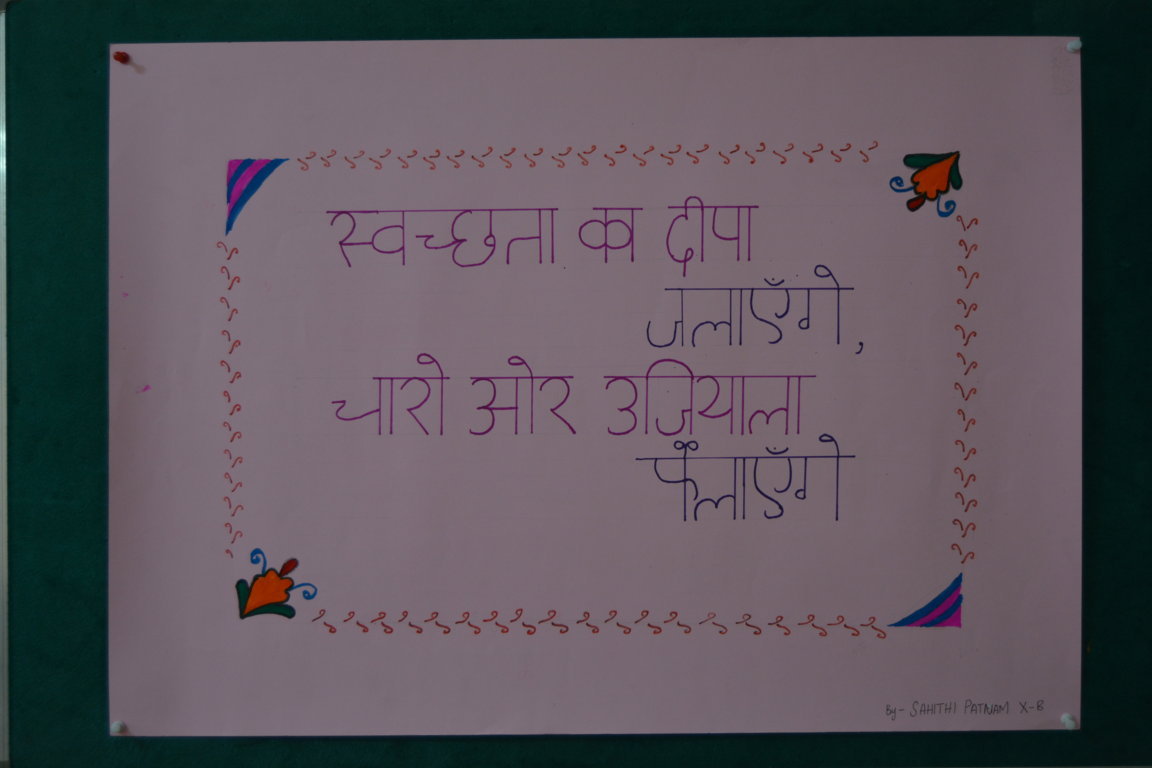 स्वच्छता का दीपा
जलाएँगे,
चारो ओर उजियाला
फैलाएँगे
By- SAHITHI PATNAM X-B